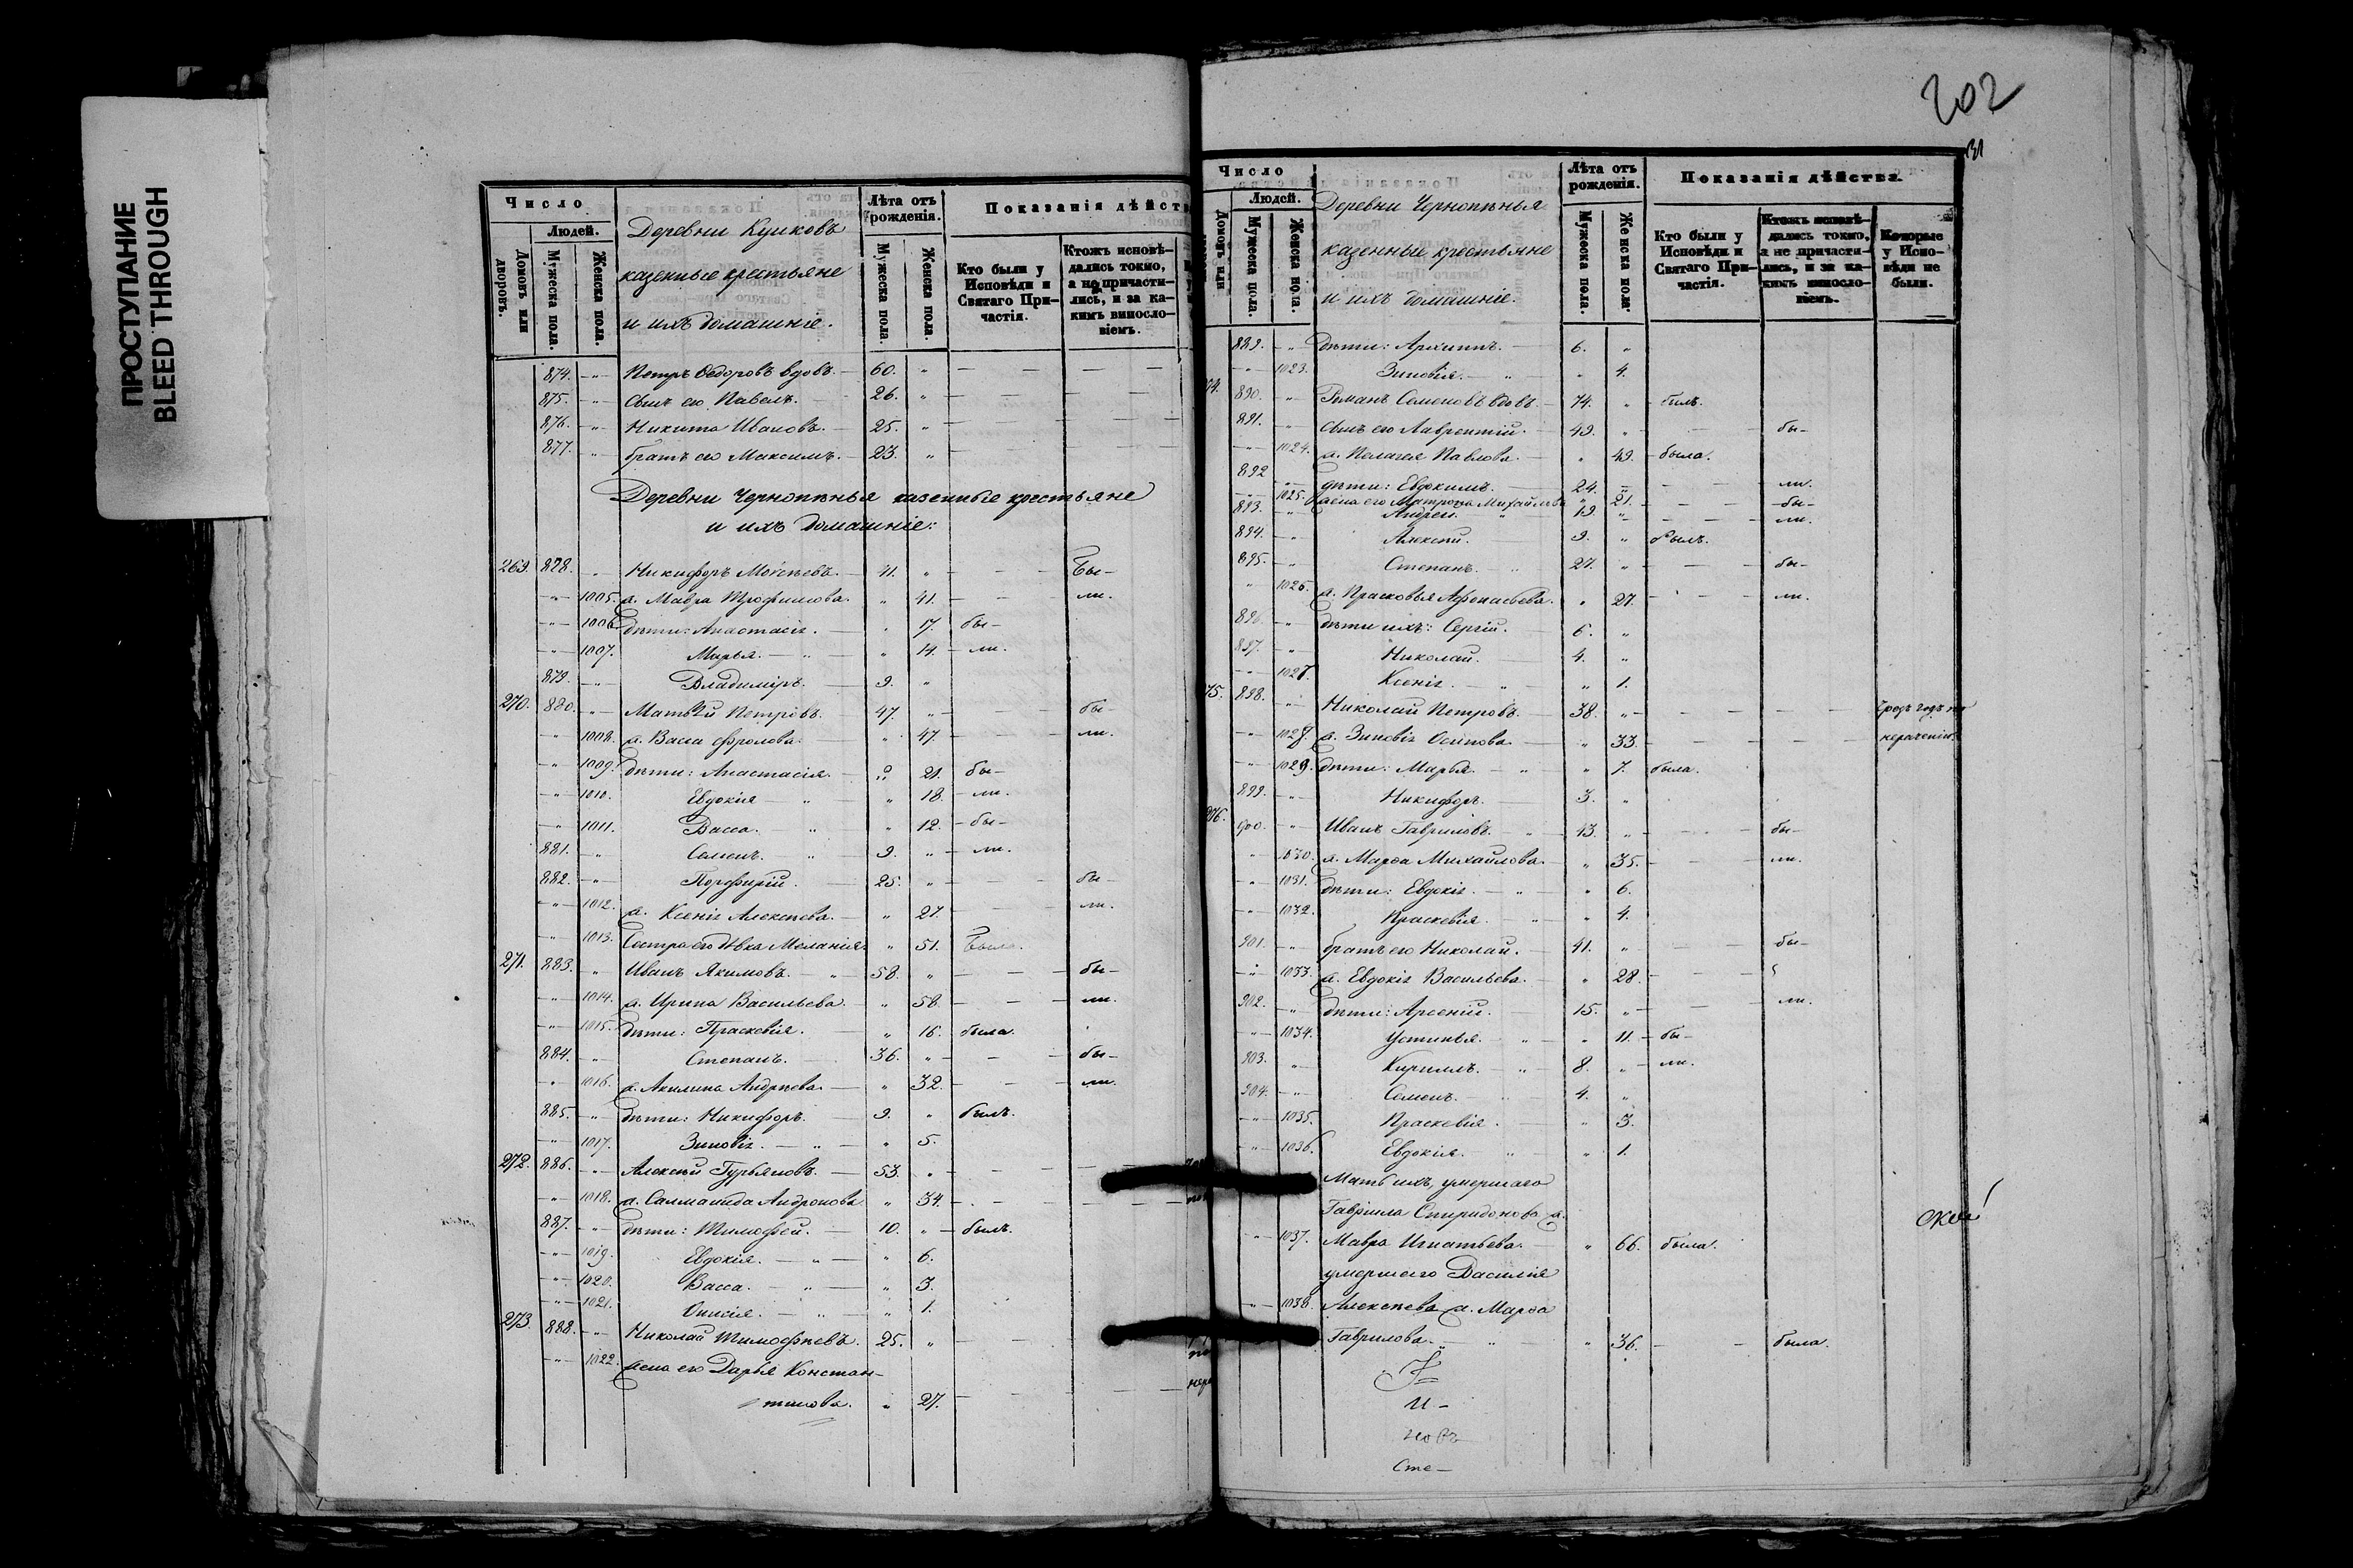 ПРОСТУПАНИЕ
BLEED THROUGH
Число
Людей.
Домовъ или дворовъ.
Мужеска пола.
Женска пола.
Деревни Куликовъ
казенные крестьяне
и ихъ домашніе.
Лѣта отъ рожденія.
Мужеска пола.
Женска пола.
Показанія дѣйст
Кто были у Исповѣди и Святаго Причастія.
Ктожъ исповѣдались токмо, а не причастились, и за какимъ винословіемъ.
874. -"- Петръ Ѳедоровъ вдовъ. 60. "
875. -"- Сынъ его Павелъ. 26. "
876. -"- Никита Ивановъ. 25. "
877. -"- братъ его Максимъ. 23. "
Деревни Чернопѣнья казенные крестьяне
и ихъ домашніе:
269. 878. " Никифоръ Моѵсеевъ. 41. " Бы-
-"- 1005. ж. Мавра Трофимова. " 41. ли.
-"- 1006. дѣти: Анастасія. " 17. бы-
-"- 1007. Марья. " 14. ли.
879. -"- Владиміръ. 9. "
270. 880. -"- Матвѣй Петровъ. 47. " бы-
" 1008. ж. Васса Фролова. " 47. ли.
" 1009. дѣти: Анастасія. " 21. бы-
-"- 1010. Евдокія " 18. ли.
-"- 1011. Васса. " 12. бы-
881. " Семенъ. 9. " ли.
882. -"- Порфирій. 25. " бы-
-"- 1012. ж. Ксенія Алексѣева. " 27. ли.
-"- 1013. Сестра его дѣвка Меланія. " 51. Была.
271. 883. " Иванъ Якимовъ. 58. " бы-
-"- 1014. ж. Ирина Васильева. " 58. ли.
-"- 1015. дѣти: Праскевія. " 16. была.
884. -"- Степанъ. 36. " бы-
-"- 1016. ж. Акилина Андреева. " 32. ли.
885. -"- дѣти: Никифоръ. 9. " былъ.
-"- 1017. Зиновія. " 5.
272. 886. -"- Алексѣй Гурьяновъ. 53. "
-"- 1018. ж. Саламанида Андронова " 34.
887. -"- дѣти: Тимофей. 10. " былъ.
-"- 1019. Евдокія. " 6.
-"- 1020. Васса. " 3.
-"- 1021. Онисія. " 1.
273. 888. -"- Николай Тимофѣевъ. 25. "
-"- 1022. жена его Дарья Констан-
тинова. " 27.
202
Число
Людей.
Домовъ или
Мужеска пола.
Женска пола.
Деревни Чернопѣнья
казенные крестьяне
и ихъ домашніе.
Лѣта отъ рожденія.
Мужеска пола.
Женска пола.
Показанія дѣйства.
Кто были у Исповѣди и Святаго Причастія.
Ктожъ исповѣдались токмо, а не причастились, и за какимъ винословіемъ.
Которые у Исповѣди не были.
889. -"- дѣти: Архиппъ. 6. "
-"- 1023. Зиновія. " 4.
74. 890. " Романъ Семеновъ вдовъ. 74. " былъ.
891. " сынъ его Лаврентій. 49. " бы-
-"- 1024. ж. Пелагея Павлова. " 49. была.
892 -"- дѣти: Евдокимъ. 24. " ли.
-"- 1025. жена его Матрона Михайлова " 21. бы-
893. -"- Андрей. 19. " ли.
894. -"- Алексѣй. 9. " былъ.
895. -"- Степанъ. 27. " бы-
" 1026. ж. Прасковья Афонасьева. " 27. ли.
896. -"- дѣти ихъ: Сергій. 6. "
897. -"- Николай. 4. "
-"- 1027. Ксенія. " 1.
75. 898. -"- Николай Петровъ. 38. "
-"- 1028. ж. Зиновія Осипова. " 33. нераченію.
-"- 1029. дѣти: Марья. " 7. была.
899. -"- Никифоръ. 3. "
276. 900. -"- Иванъ Гавриловъ. 43. " бы-
" 1030. ж. Марѳа Михайлова. " 35. ли.
" 1031. дѣти: Евдокія. " 6.
-"- 1032. Праскевія. " 4.
901. -"- братъ его Николай. 41. " бы-
-"- 1033. ж. Евдокія Васильева. " 28.
902. -"- дѣти: Арсеній. 15. " ли.
-"- 1034. Устинья. " 11. бы-
903. " Кириллъ. 8. " ли.
904. -"- Семенъ. 4. "
-"- 1035. Праскевія. " 3.
-"- 1036. Евдокія. " 1.
Мать ихъ, умершаго
Гавріила Спиридонова ж.
-"- 1037. Мавра Игнатьева. " 66. была.
умершаго Василія
-"- 1038. Алексѣева ж. Марѳа
Гаврилова. " 36. была.
И-
новъ
Сте-